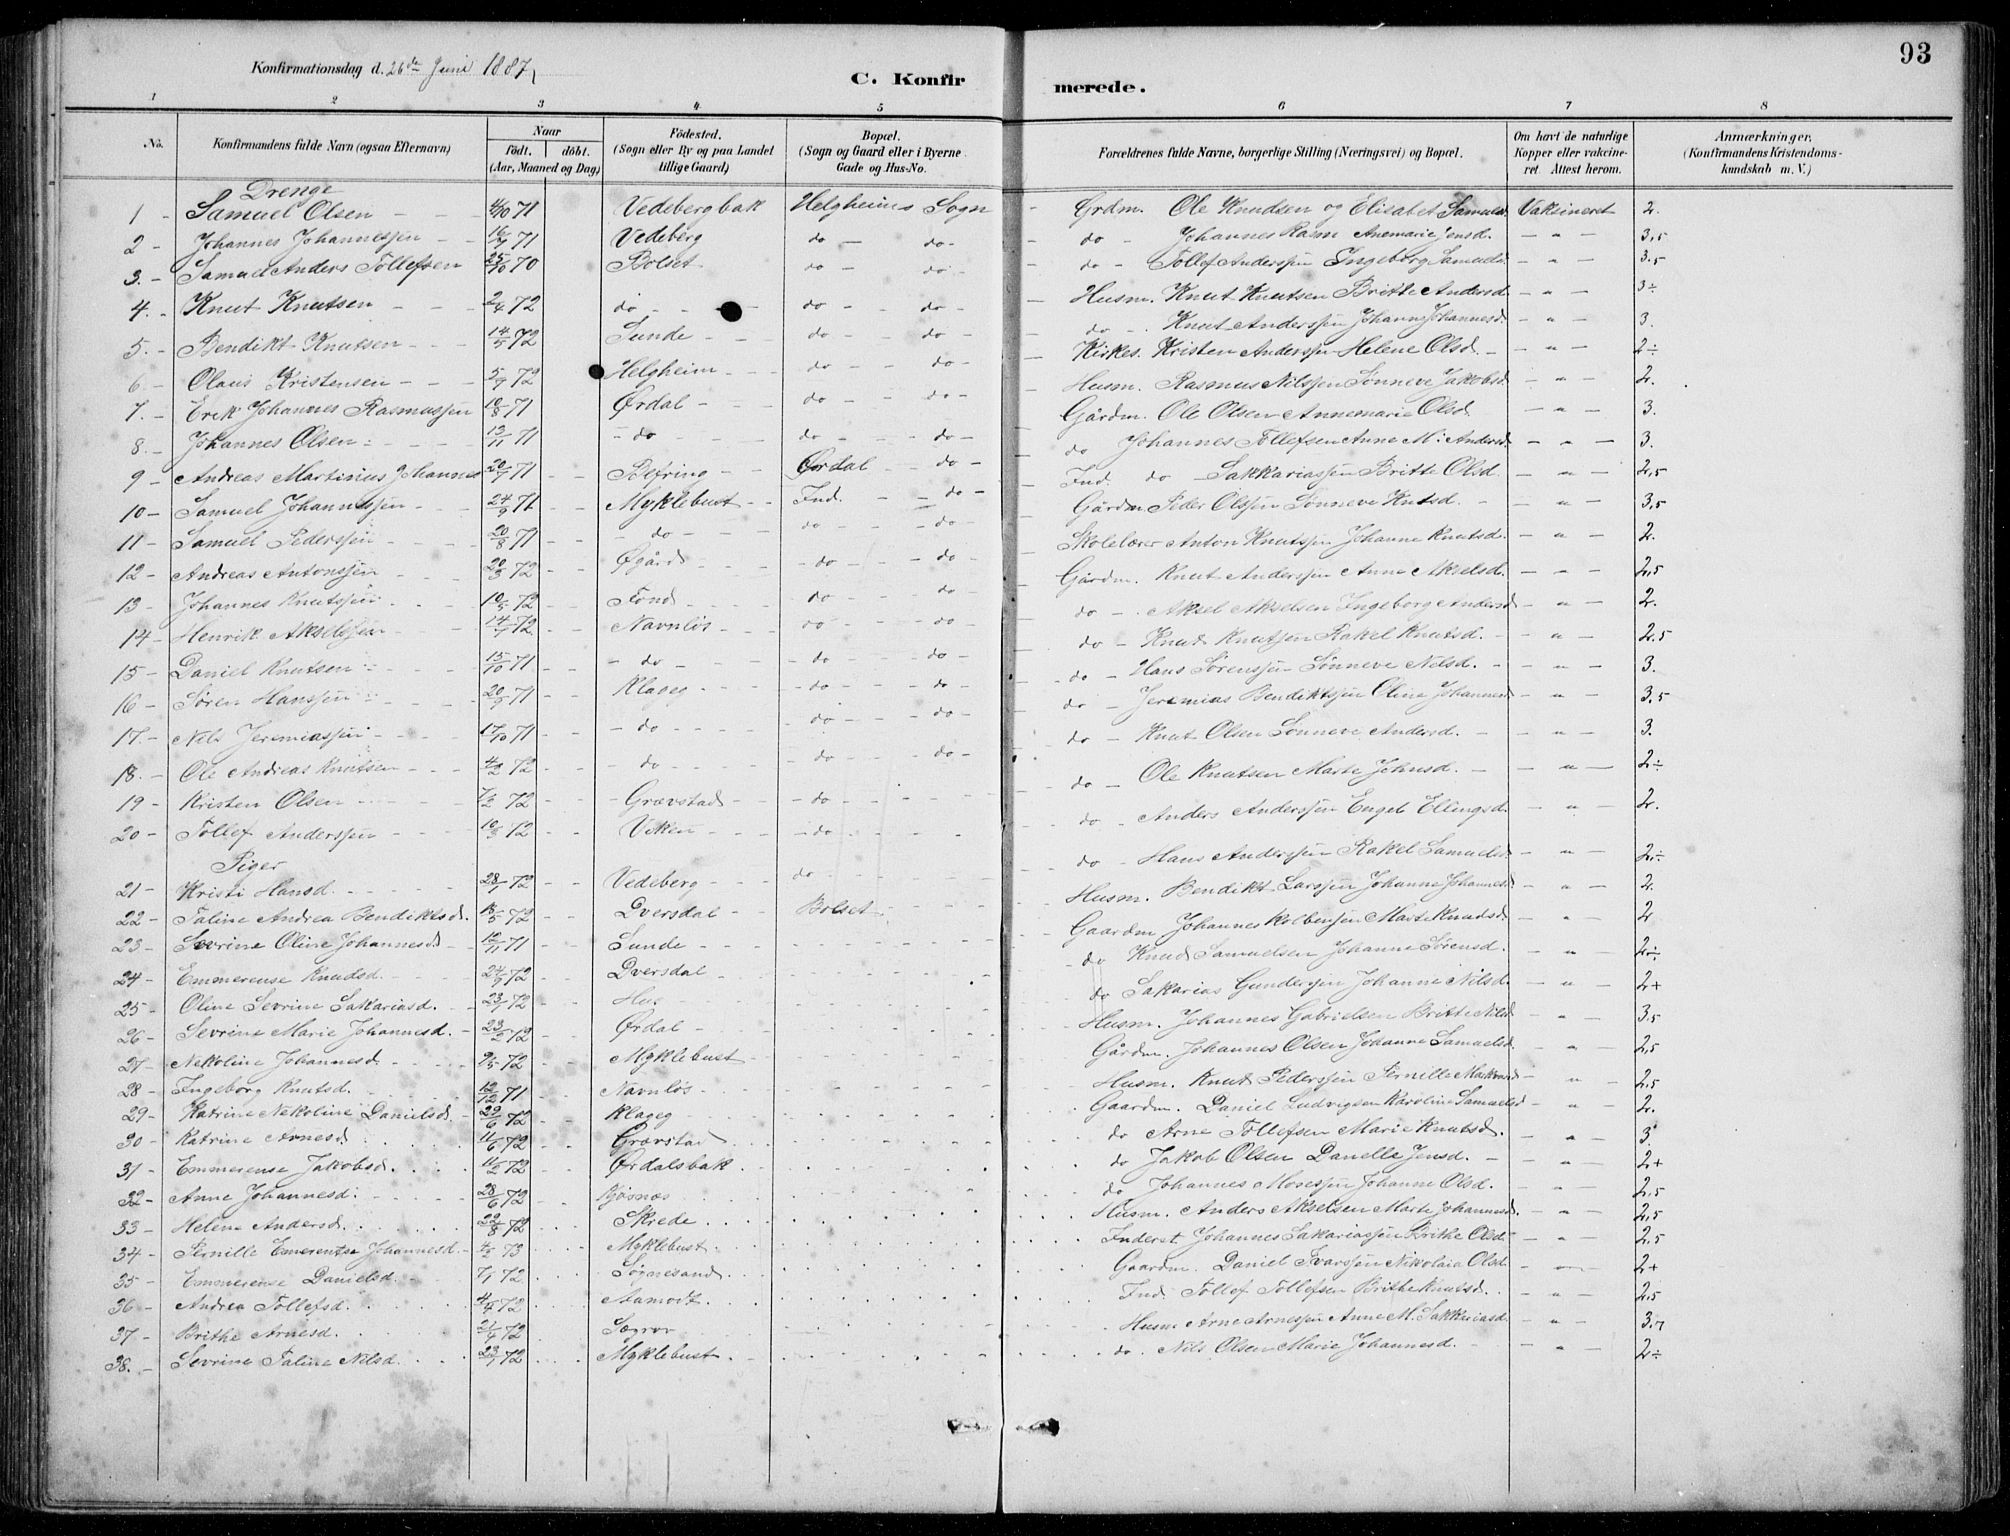 93
Konfirmationsdag d. 26de Juni 1887
C. Konfirmerede.
1 2 3 4 5 6 7 8
No. Konfirmandens fulde Navn (ogsaa Efternavn) Naar födt. döbt. (Aar, Maaned og Dag) Födested. (Sogn eller By og paa Landet tillige Gaard) Bopæl. (Sogn og Gaard eller i Byerne Gade og Hus-No. Forældrenes fulde Navne, borgerlige Stilling (Næringsvei) og Bopæl. Om havt de naturlige Kopper eller vakcineret. Attest herom. Anmærkninger. (Konfirmandens Kristendomskundskab m. V.)
Drenge
1 - Samuel Olsen - - 4/10 71 Vedebergbak Helgheims Sogn - Grdm. Ole Knudsen og Elisabet Samuelsd. Vaksineret 2.
2 - Johannes Johannessen - - 16/7 71 Vedeberg do - do - do - Johannes Rasm Anemarie Jensd. - " - 3,5
3. - Samuel Anders Tollefsen 25/10 70 Bolset do - do - do - Tollef Anderssen Ingeborg Samuelsd. - " - 3.5
4. - Knut Knutsen - - 2/4 72 do - - do - do - Husm. Knut Knutsen Britte Andersd. - " - 3÷
5. - Bendikt Knutsen - - 14/5 72 Sunde - - do - do - do - Knut Anderssen Johanne Johannesd. - " - 3.
6 - Olaus Kristensen - - 5/9 72 Helgheim - - do - do - Kirkes. Kristen Anderssen Helene Olsd. - " - 2÷
7. - Erik Johannes Rasmussen 10/8 71 Ørdal - - do - do - Husm. Rasmus Nilssen Sönneve Jakobsd. - " - 2.
8. - Johannes Olsen - - 13/11 71 - do - - do - do - Gårdm. Ole Olsen Annemarie Olsd. - " - 3.
9 - Andreas Martinius Johannes 20/7 71 Befring - - Ørdal - do - do Johannes Tollefsen Anne M. Andersd. - " - 3.
10 - Samuel Johannessen - 24/9 71 Myklebust - - Ind. - do - Ind. do - Sakkariassen Britte Olsd. - " - 2,5
11 - Samuel Pederssen - - 20/8 71 - do - - do - do - Gårdm. Peder Olssen Sönneve Knutsd. - " - 3,5
12 - Andreas Antonssen - 20/3 72 Øgård - do - do - Skolelærer Anton Knutssen Johanne Knutsd. - " - 2.
13 - Johannes Knutssen - - 10/5 72 Fond - do - do - Gårdm. Knut Anderssen Anne Akselsd. - " - 2,5
14 - Henrik Akselssen - 14/7 72 Navnlös - do - do - do - Aksel Akselsen Ingeborg Andersd. - " - 2.
15 - Daniel Knutsen - - 15/10 71 - do - do - do - do - Knud Knutsen Rakel Knutsd. - " - 2.5
16 - Søren Hanssen - - 20/9 71 Klageg - - do - do - do - Hans Sörenssen Sönneve Nilsd. - " - 3.
17. - Nils Jeremiassen - - 17/10 71 - do - - do - do - do - Jeremias Bendiktssen Oline Johannesd. - " - 3.5
18. - Ole Andreas Knutsen - - 4/2 72 - do - - do - do - do - Knut Olsen Sönneve Andersd. - " - 3.
19 - Kristen Olsen - - 72 - Grøvstad - - do - - do - Ole Knutsen Marte Johnsd. - " - 2÷
20 - Tollef Anderssen - - 10/3 72 Viken - - do - - do - Anders Anderssen Engel Ellingsd. - " - 2.
Piger
21 - Kristi Hansd. - - 28/1 72 Vedeberg - - do - do - Hans Anderssen Rakel Samuelsd. - " - 2÷
22 - Taline Andrea Bendiktsd. 18/5 72 Dversdal - - Bolset - Husm. Bendikt Larssen Johanne Johannesd. - " - 2.
23 - Sevrine Oline Johannesd. - 10/11 71 Sunde - - Gaardm Johannes Kolbensen Marte Knudsd. - " - 2
24 - Emmerense Knudsd. - - 24/9 72 Dversdal - - do Knud Samuelsen Johanne Sörensd. - " - 2÷
25 - Oline Sevrine Sakariasd. - 23/7 72 Hus - do Sakarias Gunderssen Johanne Nilsd. - " - 2+
26 - Sevrine Marie Johannesd. - 23/2 72 Ørdal - Husm. Johannes Gabrielsen Britte Nilsd. - " - 3,5
27 - Nekoline Johannesd. - - 9/5 72 Myklebust - - Gårdm. Johannes Olsen Johanne Samuelsd. - " - 2,5
28 - Ingeborg Knutsd. - - 12/12 71 Navnlös - Husm. Knud Pederssen Pernille - " - 2,5
29 - Katrine Nekoline Danielsd. - 22/6 72 Klageg - Gaardm. Daniel Ludvigsen Karoline Samuelsd. - " - 2.
30 - Katrine Arnesd. 11/6 72 Grøvstad . . do Arne Tollefsen Marie Knutsd. - " - 3.
31 - Emmerense Jakobsd. 11/2 72 Ørdalsbak . . do Jakob Olsen Danelle Jensd. - " - 2+
32 - Anne Johannesd. 28/6 72 Kjösnæs . . do Johannes Mosessen Johanne Olsd. - " - 2,5
33 - Helene Andersd. 22/8 72 Skrede . . Husm. Anders Akselsen Marte Johannesd. - " - 2,5
34 - Pernille Emerentse Johannesd. - 4/2 73 Myklebust . . Inderst Johannes Sakariassen Brithe Olsd. - " - 2,5
35 - Emmerense Danielsd. 7/1 72 Sögnesand . . Gaardm. Daniel Ivarssen Nikolaia Olsd. - " - 2+
36 - Andrea Tollefsd. 4/4 72 Aamodt . . Ind. Tollef Tollefsen Brithe Knutsd. - " - 2,5
37 - Brithe Arnesd. 21/4 72 Sægrov . . Husm Arne Arnessen Anne M. Sakkariasd. - " -
38. - Sevrine Taline Nilsd. 23/7 72 Myklebust . . do. Nils Olsen Marie Johannesd. - " - 2÷